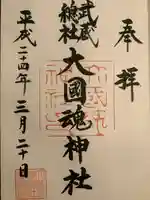 奉拝
武蔵
總社
大國魂神社
平成二十四年三月二十日